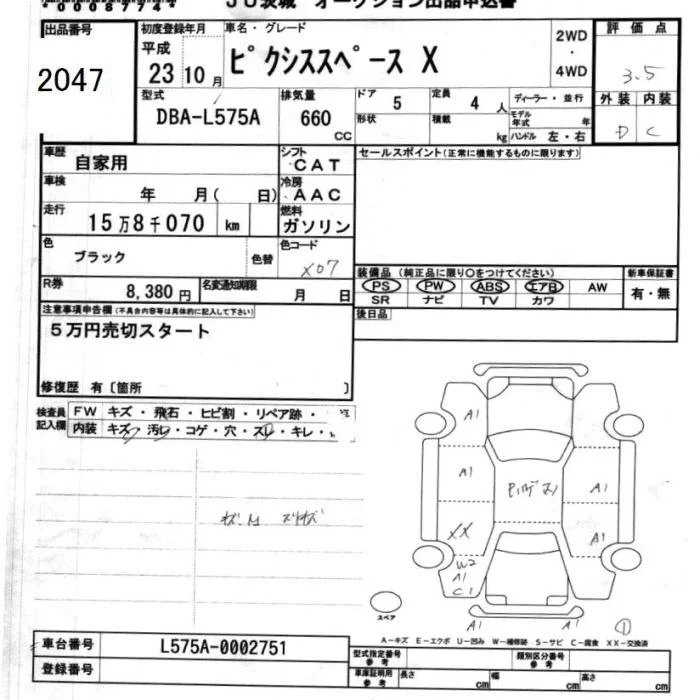 *0008774*
JU茨城 オークション出品申込書
出品番号
2047
初度登録年月
平成
23 10月
車名・グレード
ピクシススペース X
2WD
・
4WD
評価点
3.5
外装 内装
D C
型式
DBA-L575A
排気量
660
CC
ドア 5
定員 4 人
形状
積載 kg
ディーラー・並行
モデル年式 年
ハンドル 左・右
車歴
自家用
シフト
CAT
車検
年 月( 日)
冷房
AAC
走行
15万8千070 km
燃料
ガソリン
色
ブラック
色替
色コード
X07
R券
8,380円
名変通知期限
月 日
セールスポイント(正常に機能するものに限ります)
装備品 (純正品に限り○をつけてください)
新車保証書
PS PW ABS エアB AW
有・無
SR ナビ TV カワ
後日品
注意事項申告欄(不具合内容等は具体的に記入して下さい)
5万円売切スタート
修復歴 有〔箇所 〕
検査員
記入欄
FW キズ・飛石・ヒビ割・リペア跡・
内装 キズ・汚レ・コゲ・穴・スレ・キレ・
A1
A1
A1
XX
A1
W2
A1
C1
A1
A1
スペア
1
A-キズ E-エクボ U-凹み W-補修跡 S-サビ C-腐食 XX-交換済
車台番号
L575A-0002751
登録番号
型式指定番号
参考
類別区分番号
参考
車庫証明用
参考
長さ cm
幅 cm
高さ cm